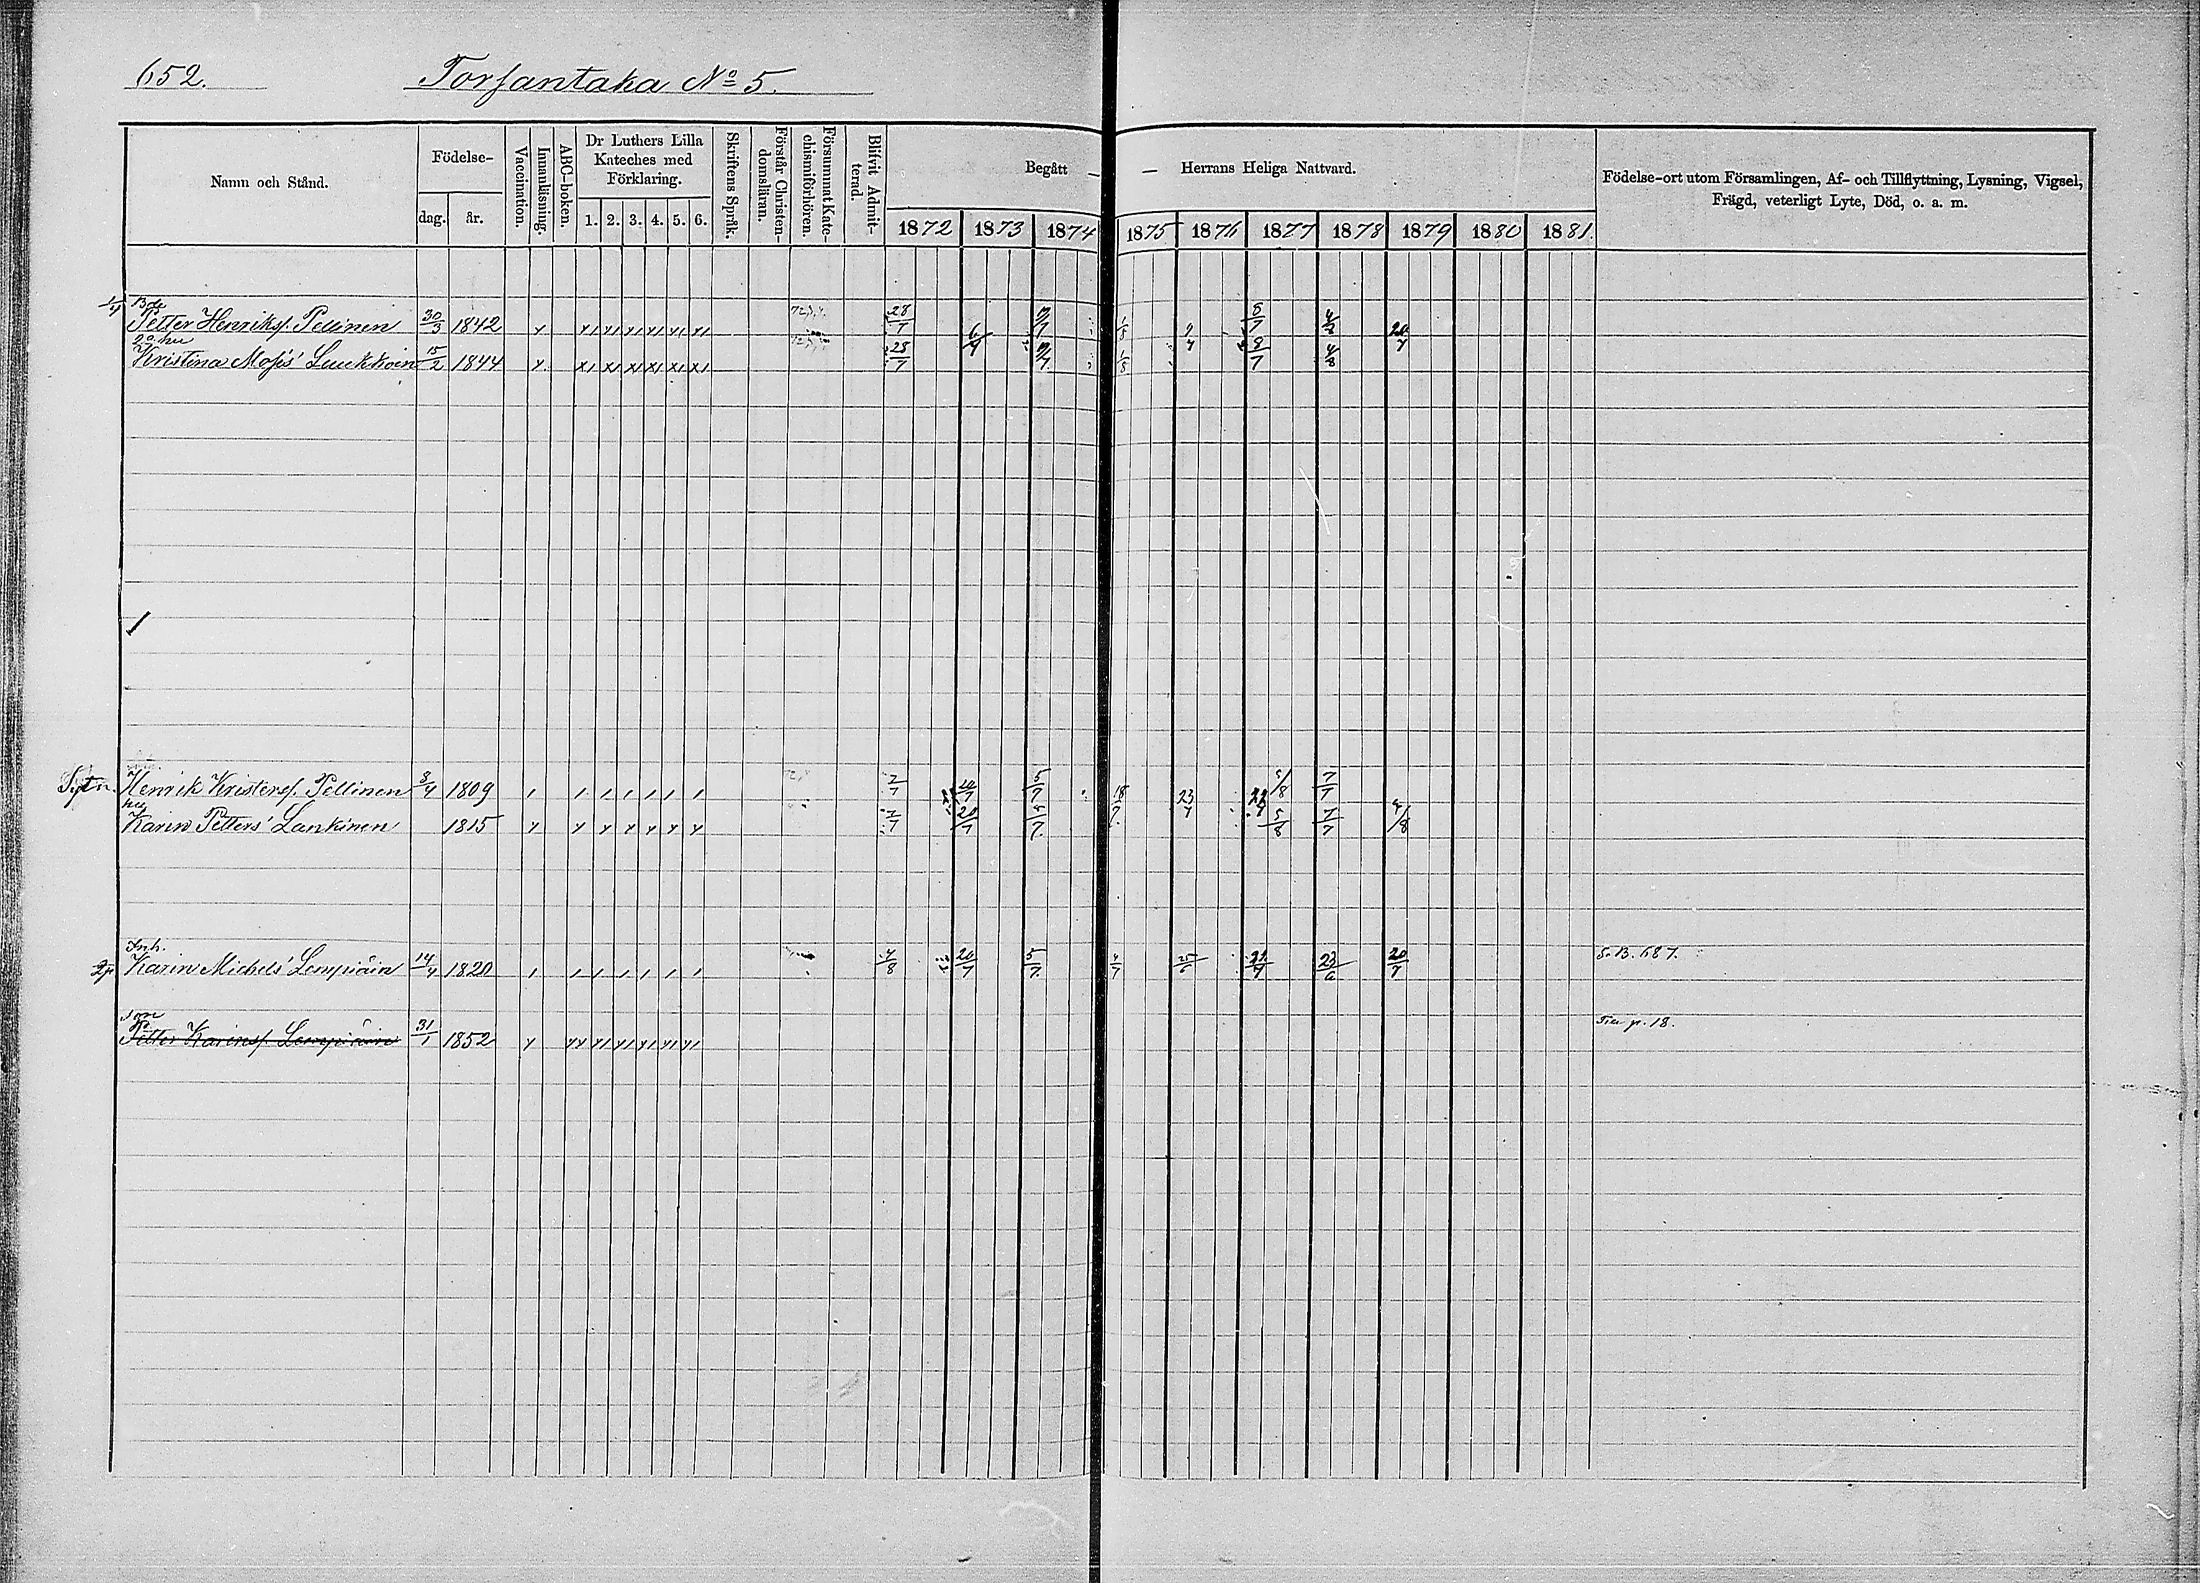 652. Torsantaka No 5.
Namn och Stånd. Födelse- dag. år. Vaccination. Innanläsning. ABC-boken. Dr Luthers Lilla Kateches med Förklaring. 1. 2. 3. 4. 5. 6. Skriftens Språk. Förstår Christen-domsläran. Försummat Kate-chismiförhören. Blifvit Admit-terad. Begått — — Herrans Heliga Nattvard. 1872 1873 1874 1875 1876 1877 1878 1879 1880 1881. Födelse-ort utom Församlingen, Af- och Tillflyttning, Lysning, Vigsel, Frägd, veterligt Lyte, Död, o. a. m.
1/4 Bde
Petter Henriksf. Pellinen 30/3 1842 28/7 1/8 8/7 4/8 20/7
hu
Kristina Mosis' Luukkoin 15/2 1844 28/7 1/8 8/7 4/8
Sytn. Henrik Kristersf. Pellinen 8/4 1809 7/7 5/7 18/7 23/7 5/8 7/7
hu
Karin Petters' Lankinen 1815 7/7 20/7 5/7 5/8 7/7 4/8
Inh.
Karin Michels' Lempiäin 14/4 1820 4/8 20/7 5/7 4/7 25/6 22/7 23/6 20/7 S.B. 687.
son
Petter Karinsf. Lempiäin 31/1 1852 p. 18.